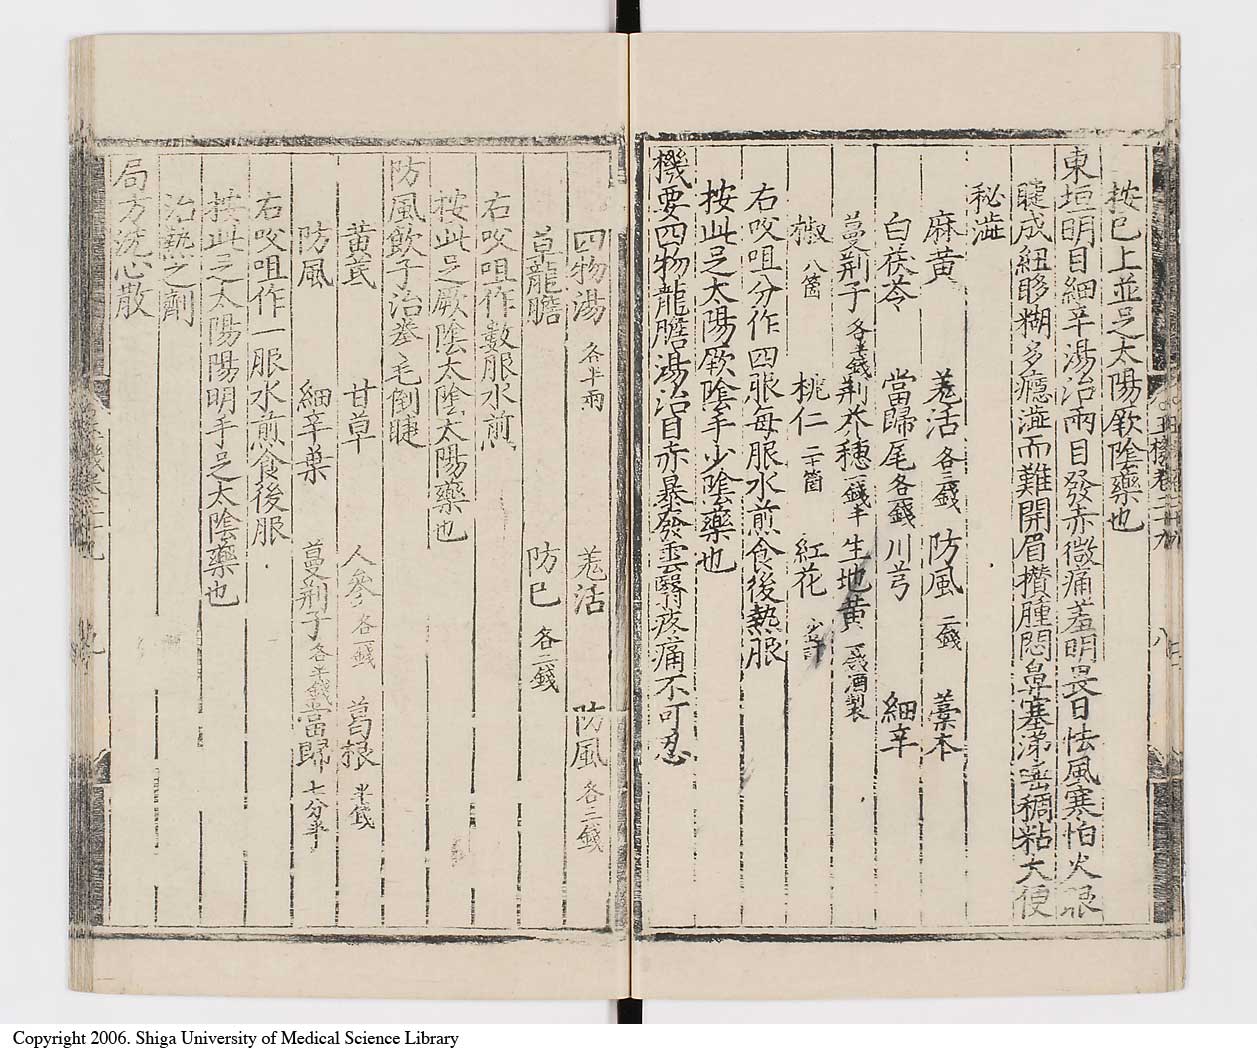 按已上並足太陽厥隂藥也
東垣明目細辛湯治兩目發赤微痛羞明畏日怯風寒怕火眼
睫成紐眵糊多癮澁而難開眉攢腫悶鼻塞涕唾稠粘大便
秘澁
麻黄 羗活各三錢 防風二錢 藁本
白茯苓 當歸尾各一錢 川芎 細辛
蔓荆子各半錢 荆芥穗一錢半 生地黄一錢酒製
椒八箇 桃仁二十箇 紅花少許
右㕮咀分作四服每服水煎食後熱服
按此足太陽厥隂手少隂藥也
機要四物龍膽湯治目赤暴發雲翳疼痛不可忍
四物湯各半兩 羗活 防風各三錢
草龍膽 防巳各二錢
右㕮咀作數服水煎
按此足厥隂太隂太陽藥也
防風飲子治拳毛倒睫
黄芪 甘草 人參各一錢 葛根半錢
防風 細辛葉 蔓荆子各半錢 當歸七分半
右㕮咀作一服水煎食後服
按此足太陽陽明手足太隂藥也
治熱之劑
局方洗心散
卷二十九
八
九
Copyright 2006. Shiga University of Medical Science Library